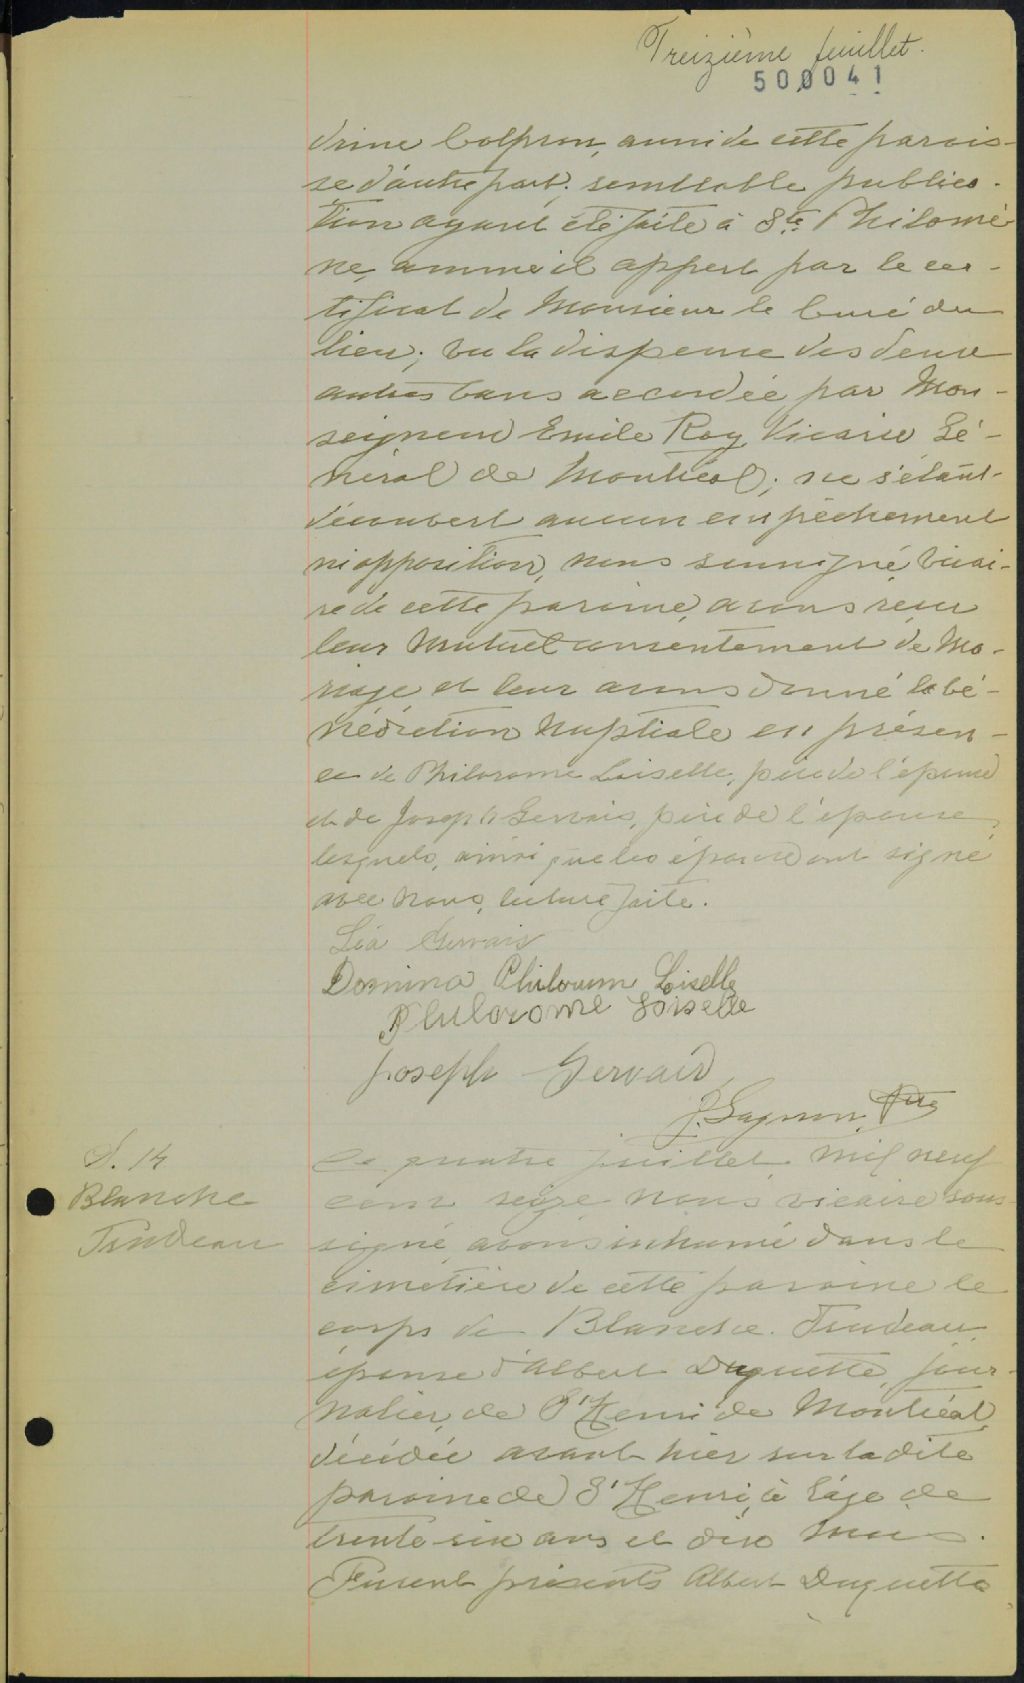 Treizième feuillet.
500041
drine Colpron, aussi de cette parois-
se d'autre part; semblable publica-
tion ayant été faite à Ste Philomè-
ne, comme il appert par le cer-
tificat de Monsieur le Curé du
lieu; vu la dispense des deux
autres bans accordée par Mon-
seigneur Emile Roy, Vicaire Gé-
néral de Montréal; ne s'étant
découvert aucun empêchement
ni opposition, nous soussigné, vicai-
re de cette paroisse, avons reçu
leur mutuel consentement de Ma-
riage et leur avons donné la bé-
nédiction Nuptiale en présen-
ce de Philorome Loiselle, père de l'époux
et de Joseph Gervais, père de l'épouse,
lesquels, ainsi que les époux ont signé
avec nous, lecture faite.
Léa Gervais
Domina Philorum Loiselle
Philorome Loiselle
Joseph Gervais
J. Gagnon, Ptre
S. 14
Blanche
Trudeau
Le quatre juillet mil neuf
cent seize nous vicaire sous-
signé, avons inhumé dans le
cimetière de cette paroisse le
corps de Blanche Trudeau,
épouse d'Albert Duquette, jour-
nalier, de St Henri de Montréal,
décédée avant hier sur la dite
paroisse de St Henri, à l'âge de
trente-six ans et dix mois.
Furent présents Albert Duquette